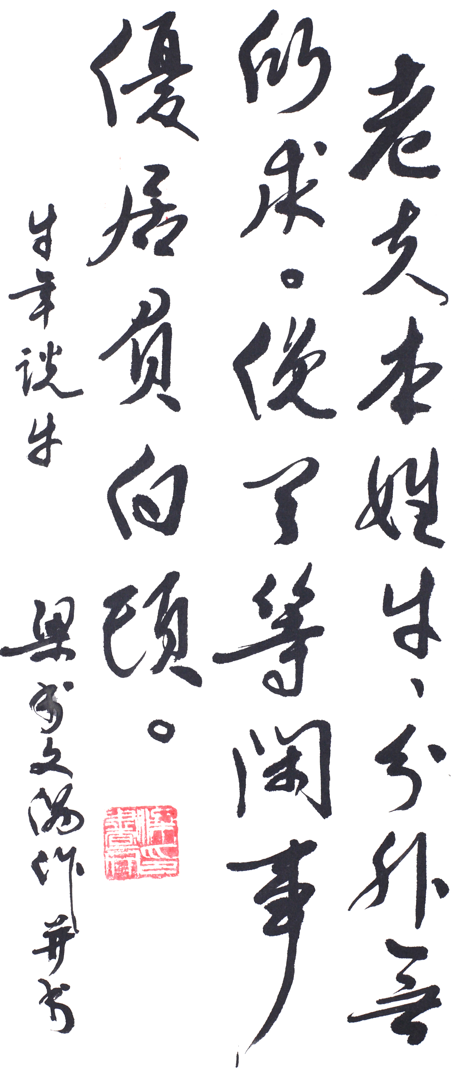 老夫本姓牛、分外無
所求。俛了等閑事
優居負白頭。
牛年談牛 梁 文 作并書